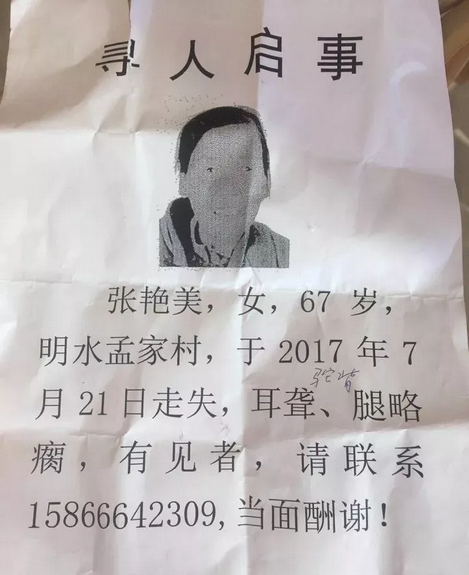 寻人启事
张艳美，女，67 岁，
明水孟家村，于 2017 年 7
驼背
月 21 日走失，耳聋、腿略
瘸，有见者，请联系
15866642309,当面酬谢！